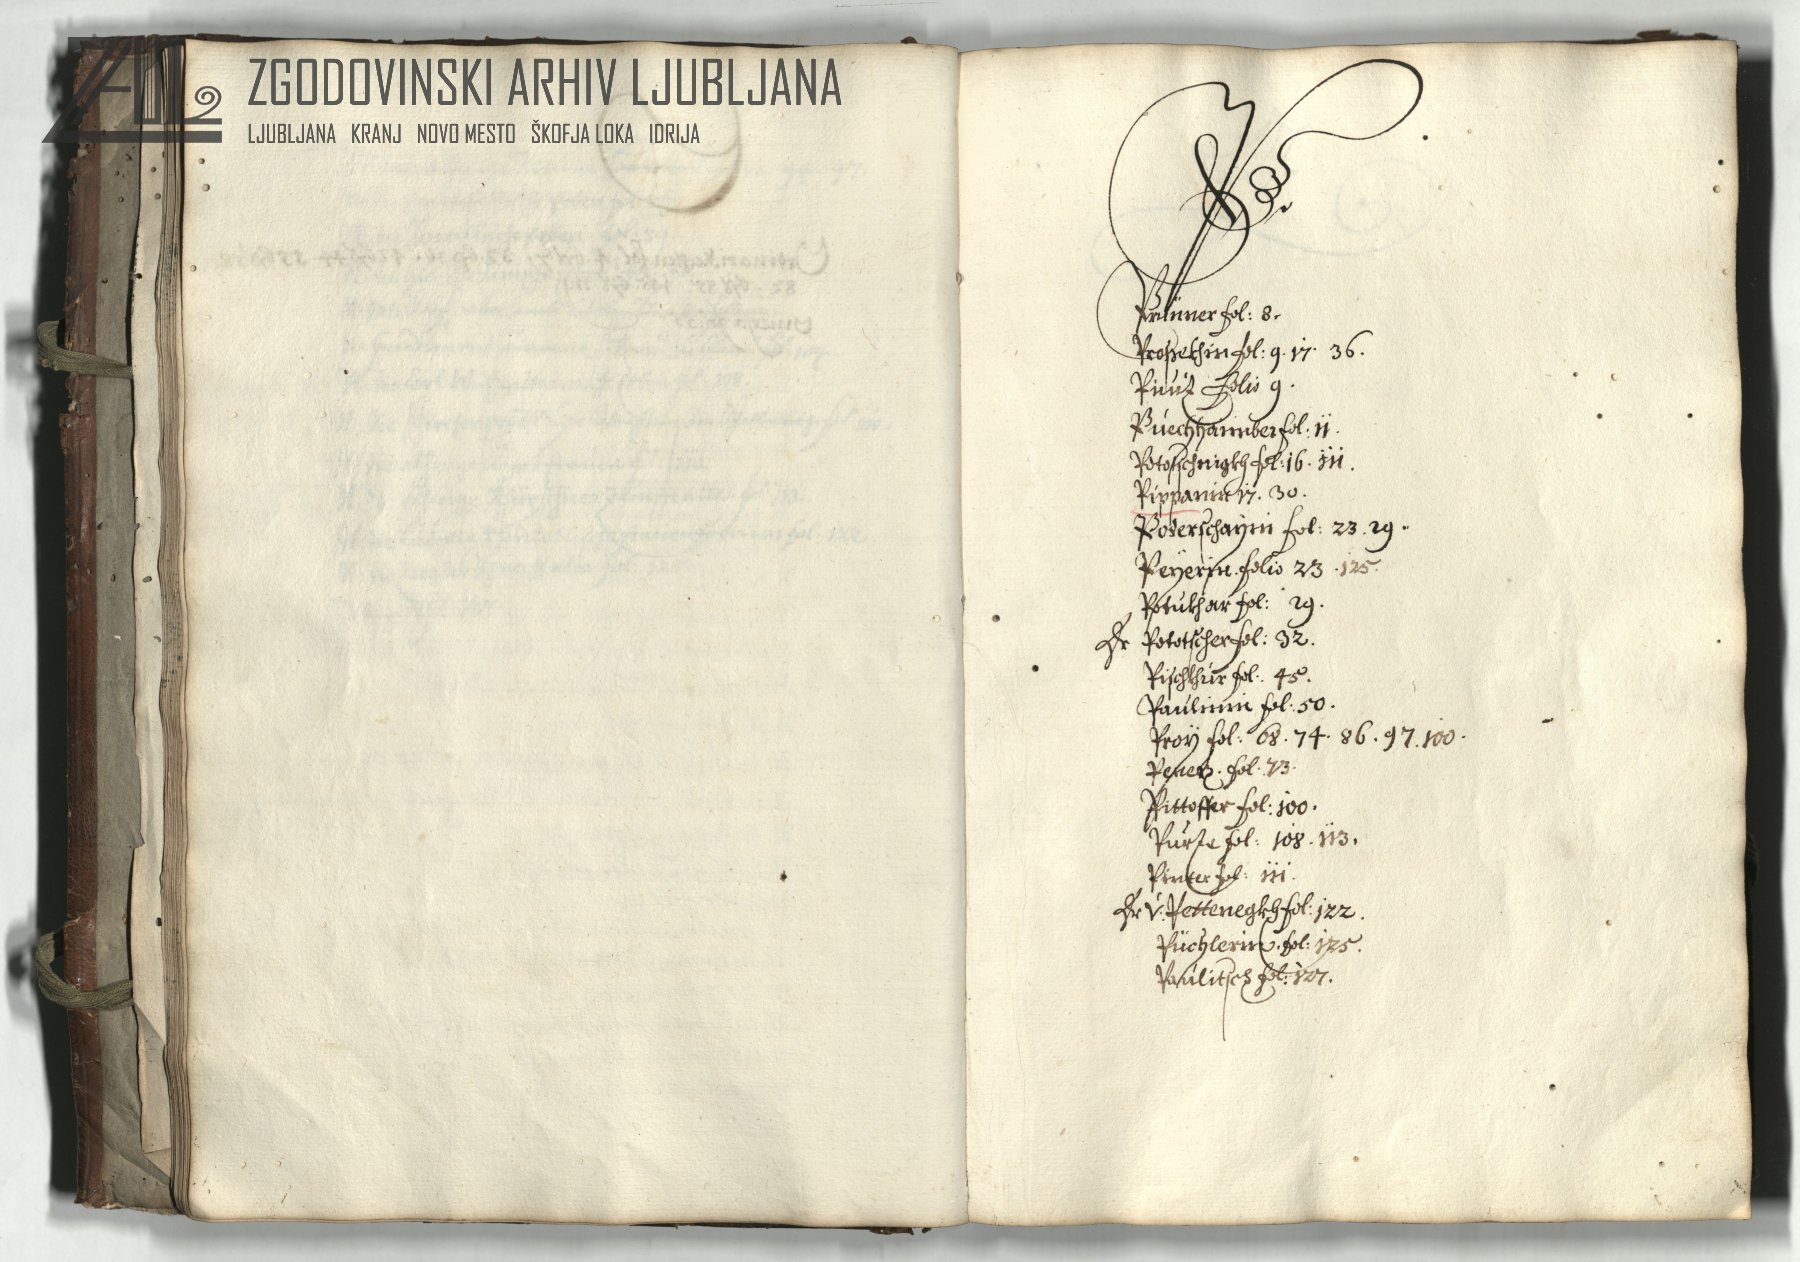 ZGODOVINSKI ARHIV LJUBLJANA
LJUBLJANA KRANJ NOVO MESTO ŠKOFJA LOKA IDRIJA
P
Prünner fol: 8.
Prossekhin fol: 9. 17. 36.
folio 9.
Puechhaimber fol: 11.
Potoschnigkh fol: 16. 111.
Pippanin 17. 30.
Poderschayin fol: 23. 29.
Peyerin folio 23. 125.
Potukhar fol: 29.
Hr Pototscher fol: 32.
Pischkhür fol: 45.
Paulinin fol: 50.
Proy fol: 68. 74. 86. 97. 100.
fol. 73.
Pittoffer fol: 100.
fol: 108. 113.
Pinter fol: 111.
Hr V: Pettenegkh fol: 122.
Püchlerin fol: 125.
Paulitsch fol: 127.